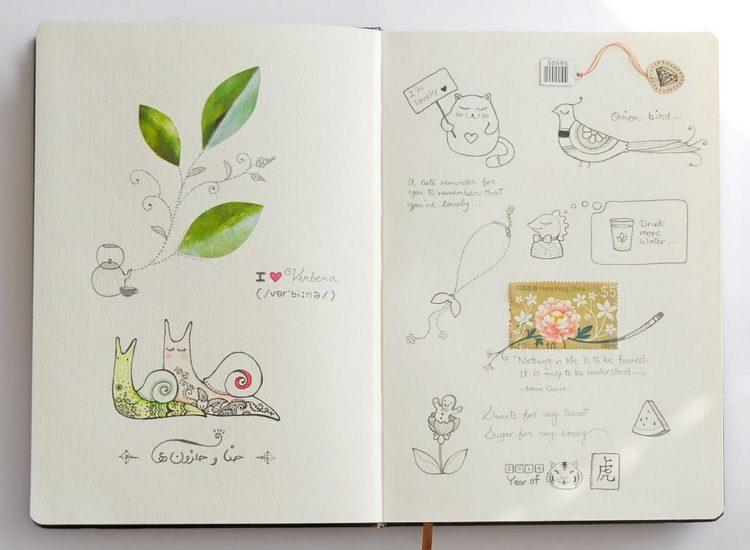 I ♥ Verbena
(/vər'bi:nə/)
حنا و حلزون ها
50595
I'm
lovely ♥
Onion bird...
A cute reminder for
you to remember that
you're lovely...
Drink
more
Water...
中國香港 Hong Kong, China
$5
"Nothing in life is to be feared.
It is only to be understood....
~Marie Curie
Sweets for my Sweet
Sugar for my honey
2010
Year of
虎